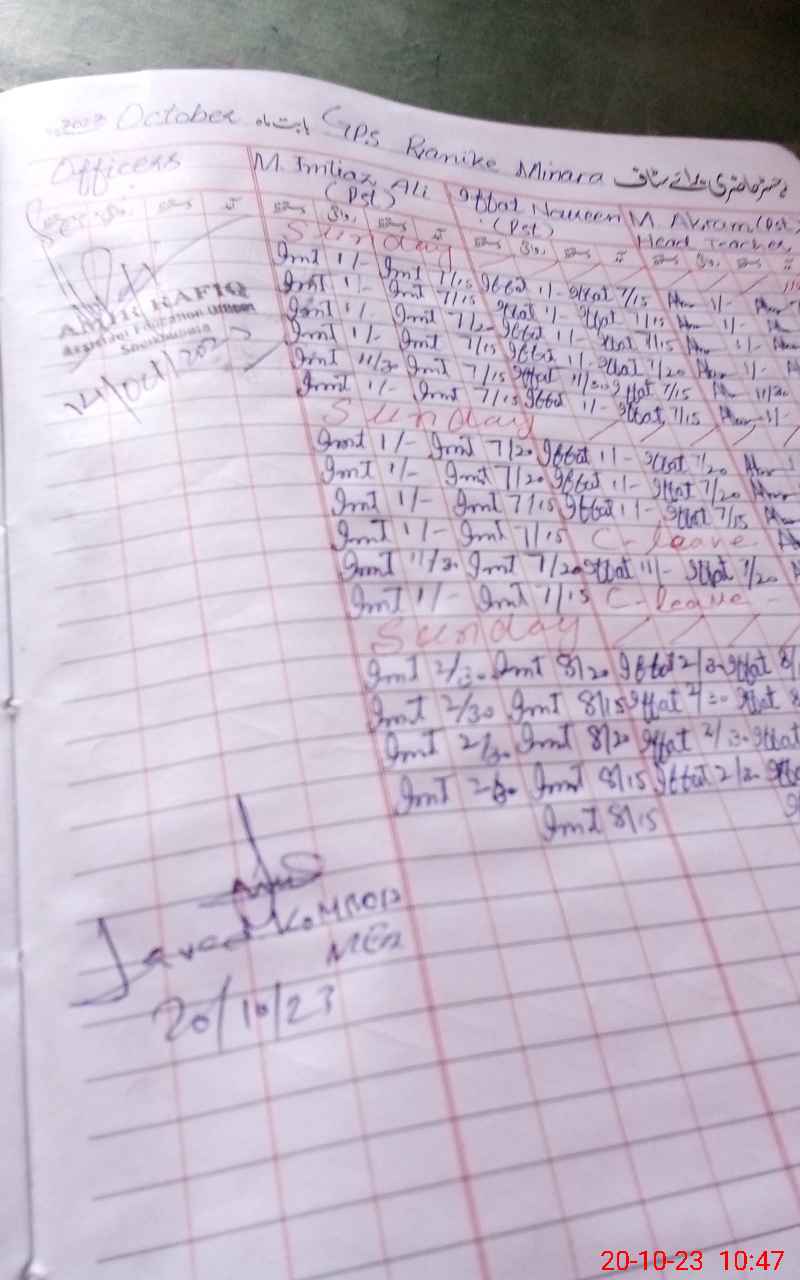 2023 October بابت ماہ G.P.S Ranike Minara رجسٹر حاضری برائے سٹاف
Officers M. Imtiaz Ali (Pst) Iffat Naureen (Pst) M. Akram (Pst) Head Teacher
Sunday
Imt 1/- Imt 7/15 Iffat 1/- Iffat 7/15 1/-
Imt 1/- Imt 7/15 Iffat 1/- Iffat 7/15 1/-
Imt 1/- Imt 7/20 Iffat 1/- Iffat 7/15 1/-
Imt 1/- Imt 7/15 Iffat 1/- Iffat 7/20 1/-
Imt 11/30 Imt 7/15 Iffat 11/30 Iffat 7/15 11/30
Imt 1/- Imt 7/15 Iffat 1/- Iffat 7/15 1/-
AMIR RAFIQ
Assistant Education Officer
14/Oct/2023
Sunday
Imt 1/- Imt 7/20 Iffat 1/- Iffat 7/20
Imt 1/- Imt 7/20 Iffat 1/- Iffat 7/20
Imt 1/- Imt 7/15 Iffat 1/- Iffat 7/15
Imt 1/- Imt 7/15 C-leave
Imt 11/30 Imt 7/20 Iffat 11/- Iffat 7/20
Imt 1/- Imt 7/15 C-leave -
Sunday
Imt 2/30 Imt 8/20 Iffat 2/30 Iffat 8/
Imt 2/30 Imt 8/15 Iffat 2/30 Iffat 8
Imt 2/30 Imt 8/20 Iffat 2/30 Iffat
Imt 2/30 Imt 8/15 Iffat 2/30
Imt 8/15
Javed
MEA
20/10/23
20-10-23 10:47